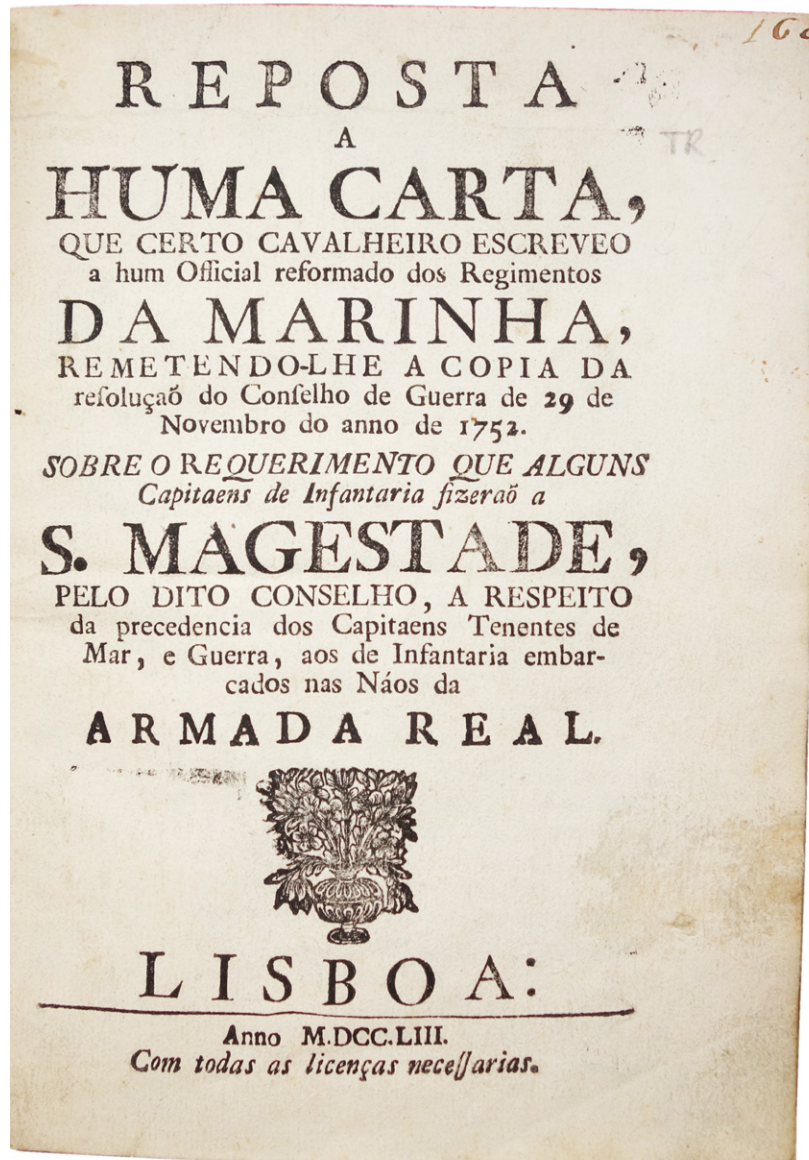 REPOSTA
A
HUMA CARTA,
QUE CERTO CAVALHEIRO ESCREVEO
a hum Official reformado dos Regimentos
DA MARINHA,
REMETENDO-LHE A COPIA DA
reſoluçaõ do Conſelho de Guerra de 29 de
Novembro do anno de 1752.
SOBRE O REQUERIMENTO QUE ALGUNS
Capitaens de Infantaria fizeraõ a
S. MAGESTADE,
PELO DITO CONSELHO, A RESPEITO
da precedencia dos Capitaens Tenentes de
Mar, e Guerra, aos de Infantaria embar-
cados nas Náos da
ARMADA REAL.
LISBOA:
Anno M.DCC.LIII.
Com todas as licenças neceſſarias.
TR